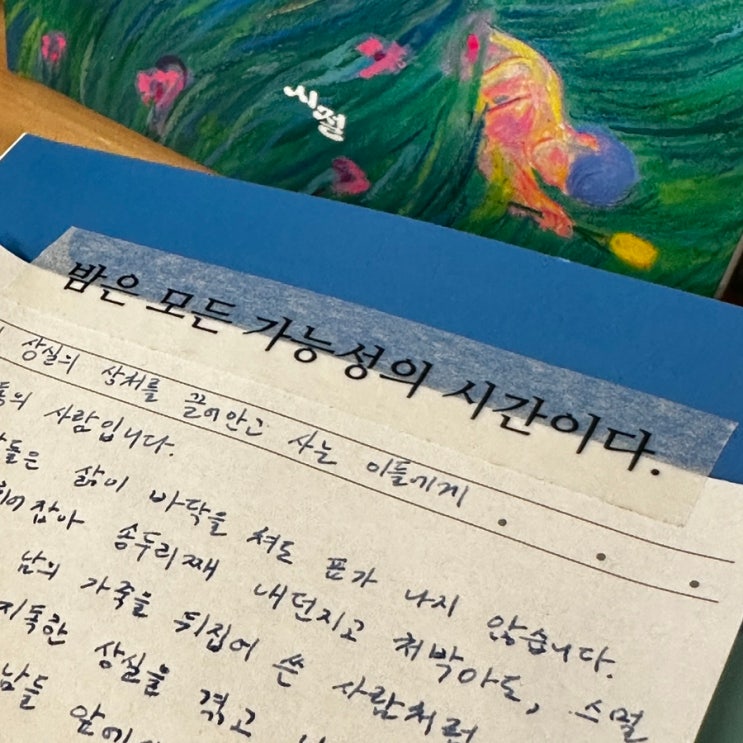 시절
밤은 모든 가능성의 시간이다.
상실의 상처를 끌어안고 사는 이들에게
사람입니다.
들은 삶이 바닥을 쳐도 표가 나지 않습니다.
잡아 송두리째 내던지고 처박아도, 스멀
남의 가죽을 뒤집어 쓴 사람처럼
지독한 상실을 겪고
남들 앞에